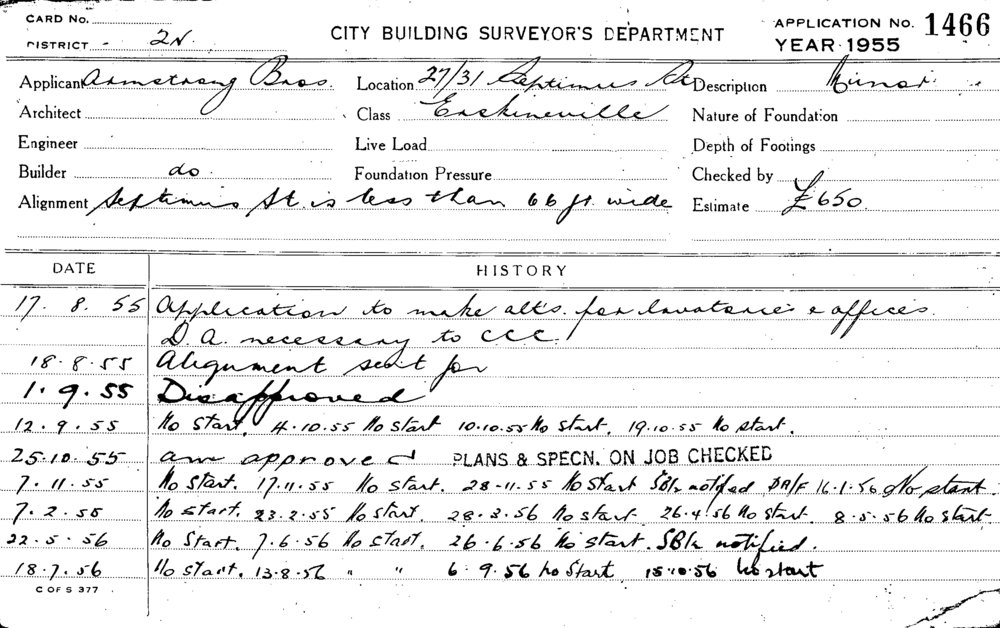 CARD No.
CITY BUILDING SURVEYOR'S DEPARTMENT
APPLICATION No. 1466
DISTRICT 2N
YEAR 1955
Applicant Armstrong Bros. Location 27/31 Septimus St Description Minor
Architect Class Erskineville Nature of Foundation
Engineer Live Load Depth of Footings
Builder do Foundation Pressure Checked by
Alignment Septimus St. is less than 66 ft. wide Estimate £650.
DATE HISTORY
17. 8. 55 Application to make alts. for lavatories & offices.
D.A. necessary to CCC.
18.8.55 Alignment sent for
1.9.55 Disapproved
12.9.55 No start. 4.10.55 No start 10.10.55 No start. 19.10.55 No start.
25.10.55 am approved PLANS & SPECN. ON JOB CHECKED
7.11.55 No start. 17.11.55 No start. 28.11.55 No start SBIr notified 16.1.56 No start.
7.2.55 No start. 23.2.55 No start. 28.3.56 No start. 26.4.56 No start. 8.5.56 No start.
22.5.56 No start. 7.6.56 No start. 26.6.56 No start. SBIr notified.
18.7.56 No start. 13.8.56 " " 6.9.56 No start 15.10.56 No start
C OF S 377